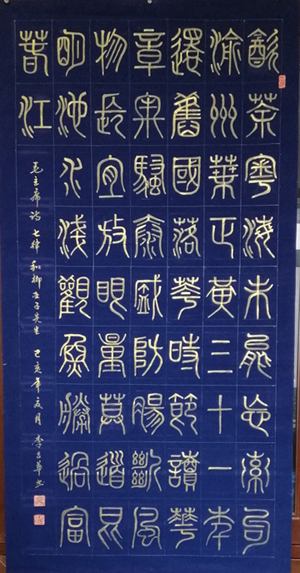 飲茶粵海未能忘索句
渝州葉正黃三十一年
還舊國落花時節讀華
章牢騷太盛防腸斷風
物長宜放眼量莫道昆
明池水淺觀魚勝過富
春江
毛主席詩七律和柳亞子先生 己亥年夏月 李